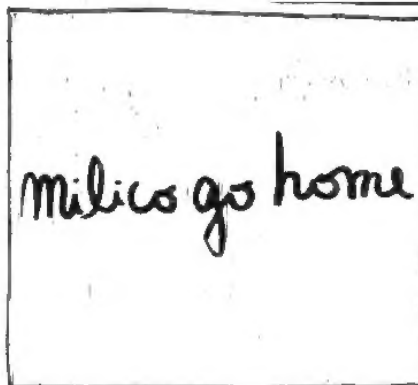 milico go home